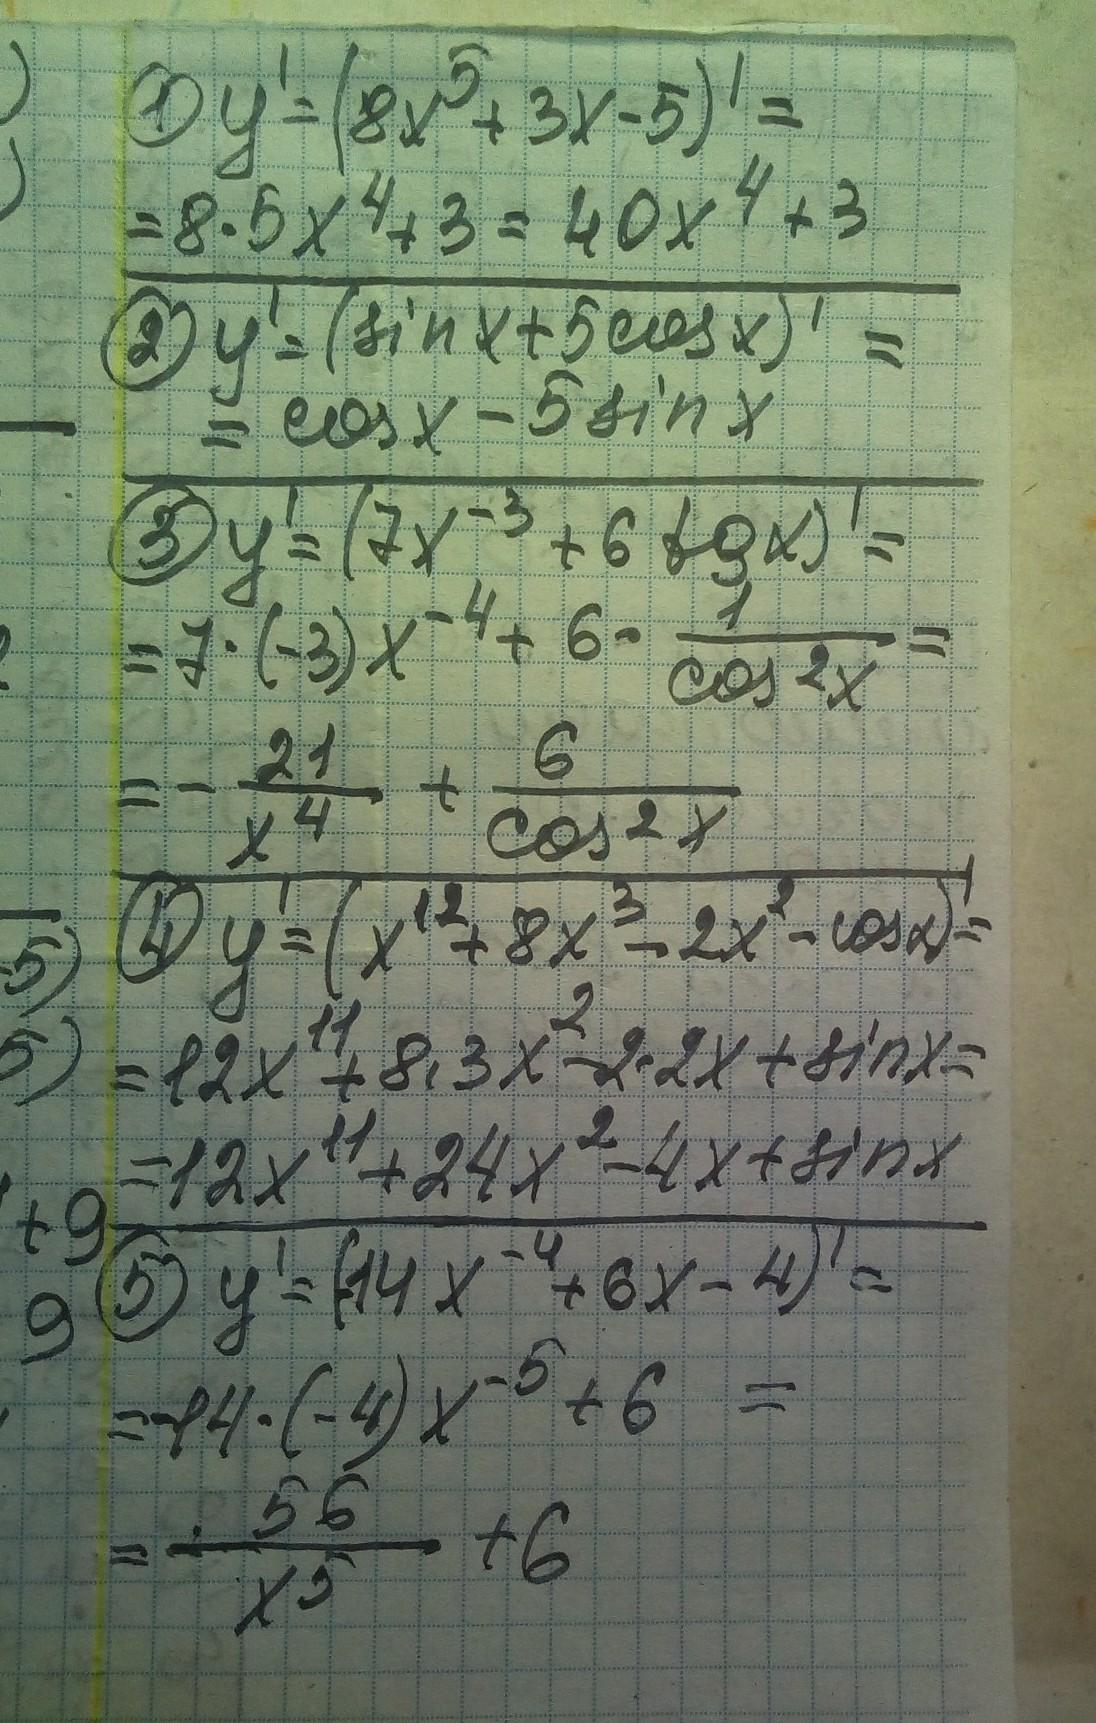 ① y' = (8x⁵ + 3x - 5)' =
= 8·5x⁴ + 3 = 40x⁴ + 3
② y' = (sinx + 5cosx)' =
= cosx - 5sinx
③ y' = (7x⁻³ + 6 tgx)' =
= 7·(-3)x⁻⁴ + 6· 1/cos²x =
= - 21/x⁴ + 6/cos²x
④ y' = (x¹² + 8x³ - 2x² - cosx)' =
= 12x¹¹ + 8·3x² - 2·2x + sinx =
= 12x¹¹ + 24x² - 4x + sinx
⑤ y' = (-14x⁻⁴ + 6x - 4)' =
= -14·(-4)x⁻⁵ + 6 =
= 56/x⁵ + 6
-5)
5)
+9
9